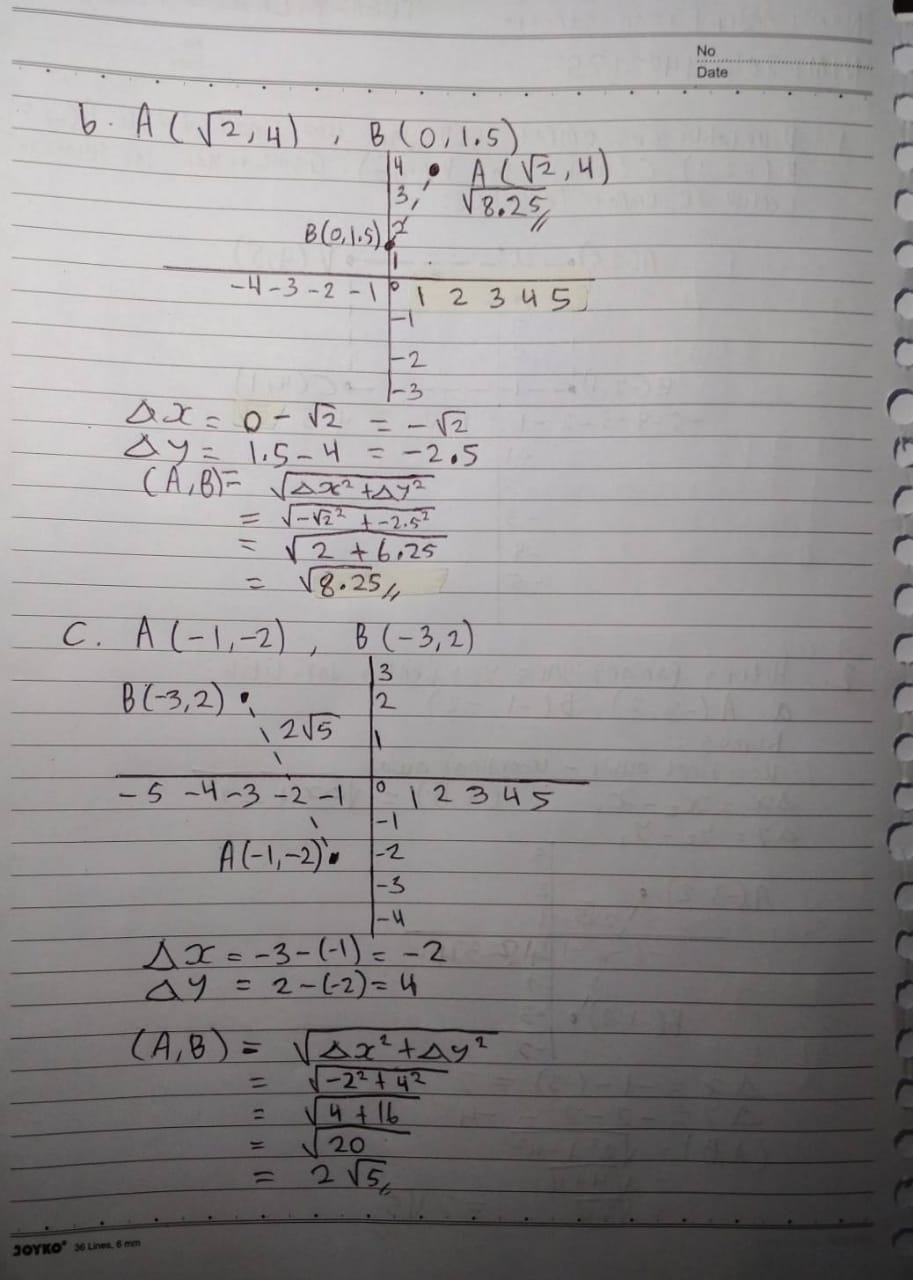 No
Date
b. A(√2,4), B(0,1.5)
4 A(√2,4)
3 √8.25
B(0,1.5) 2
1
-4 -3 -2 -1 0 1 2 3 4 5
-1
-2
-3
Δx = 0 - √2 = -√2
Δy = 1.5 - 4 = -2.5
(A,B) = √Δx² + Δy²
= √-√2² + -2.5²
= √2 + 6.25
= √8.25
C. A(-1,-2), B(-3,2)
3
B(-3,2) 2
2√5 1
-5 -4 -3 -2 -1 0 1 2 3 4 5
-1
A(-1,-2) -2
-3
-4
Δx = -3-(-1) = -2
Δy = 2-(-2) = 4
(A,B) = √Δx² + Δy²
= √-2² + 4²
= √4 + 16
= √20
= 2√5
JOYKO 36 Lines, 6 mm